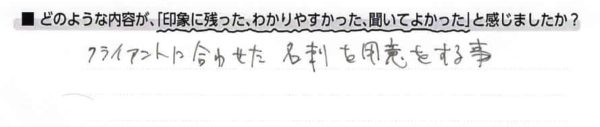 ■ どのような内容が、「印象に残った、わかりやすかった、聞いてよかった」と感じましたか？
クライアントに合わせた 名刺を用意をする事